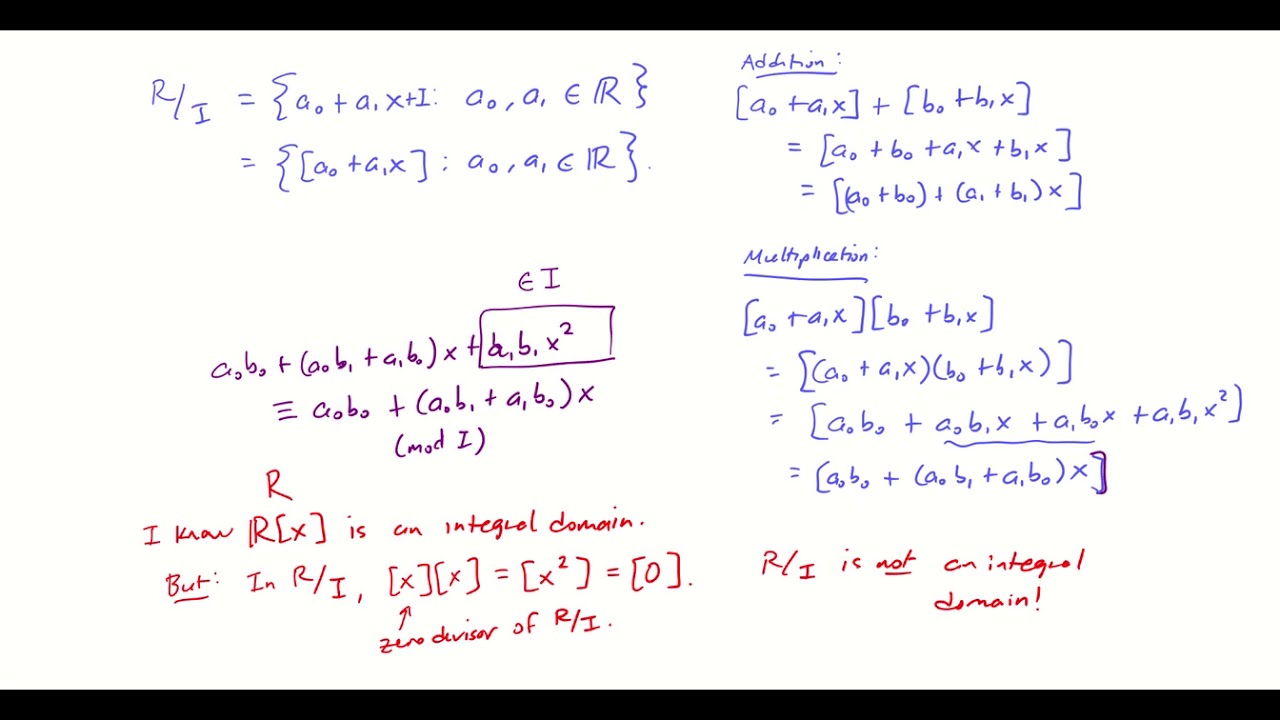 R/I = {a₀ + a₁x+I : a₀, a₁ ∈ ℝ}
= {[a₀ + a₁x] : a₀, a₁ ∈ ℝ}.
Addition:
[a₀ + a₁x] + [b₀ + b₁x]
= [a₀ + b₀ + a₁x + b₁x]
= [(a₀ + b₀) + (a₁ + b₁)x]
Multiplication:
[a₀ + a₁x][b₀ + b₁x]
= [(a₀ + a₁x)(b₀ + b₁x)]
= [a₀b₀ + a₀b₁x + a₁b₀x + a₁b₁x²]
= [a₀b₀ + (a₀b₁ + a₁b₀)x]
∈ I
a₀b₀ + (a₀b₁ + a₁b₀)x + a₁b₁x²
≡ a₀b₀ + (a₀b₁ + a₁b₀)x
(mod I)
R
I know ℝ[x] is an integral domain.
But: In R/I, [x][x] = [x²] = [0].
↑
zero divisor of R/I.
R/I is not an integral
domain!